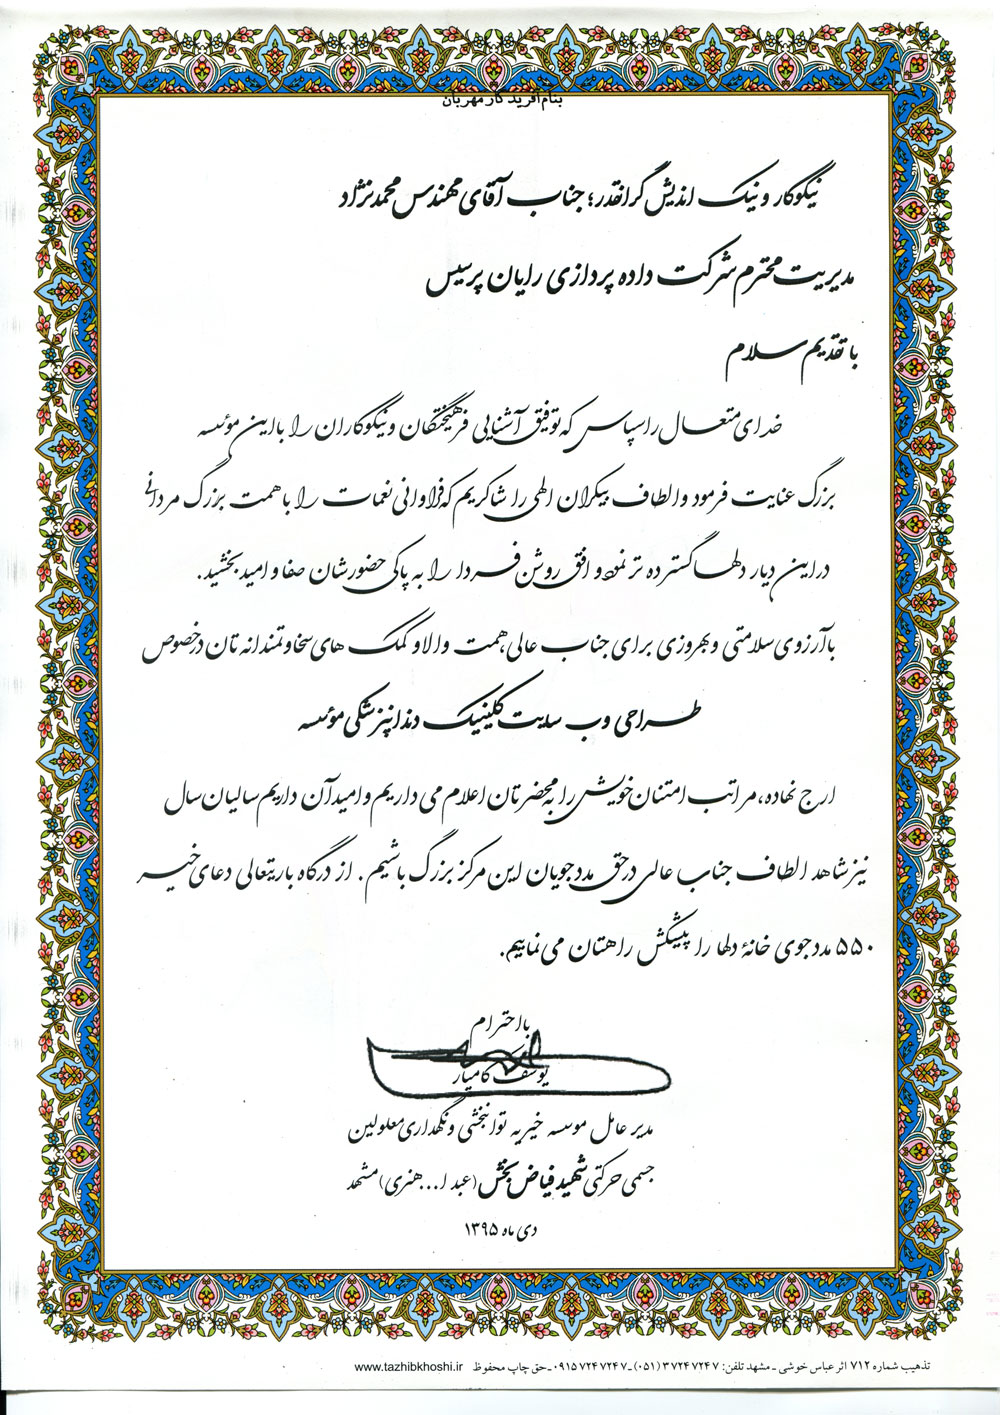 بنام آفریدگار مهربان
نیکوکار و نیک اندیش گرانقدر؛ جناب آقای مهندس محمدنژاد
مدیریت محترم شرکت داده پردازی رایان پرسیس
با تقدیم سلام
خدای متعال را سپاس که توفیق آشنایی فرهیختگان و نیکوکاران را با این مؤسسه
بزرگ عنایت فرمود و الطاف بیکران الهی را شاکریم که فراوانی نعمات را با همت بزرگ مردانی
در این دیار دلها گسترده تر نمود و افق روشن فردا را به پاکی حضورشان صفا و امید بخشید.
با آرزوی سلامتی و بهروزی برای جناب عالی، همت والا و کمک های سخاوتمندانه تان در خصوص
طراحی وب سایت کلینیک دندانپزشکی مؤسسه
ارج نهاده، مراتب امتنان خویش را به محضرتان اعلام می داریم و امید آن داریم سالیان سال
نیز شاهد الطاف جناب عالی در حق مددجویان این مرکز بزرگ باشیم. از درگاه باریتعالی دعای خیر
۵۵۰ مددجوی خانهٔ دلها را پیشکش راهتان می نماییم.
با احترام
یوسف کامیار
مدیر عامل موسسه خیریه توانبخشی و نگهداری معلولین
جسمی حرکتی شهید فیاض بخش (عبدا... هنری) مشهد
دی ماه ۱۳۹۵
تذهیب شماره ۷۱۲ اثر عباس خوشی - مشهد تلفن: ۳۷۲۴۷۲۴۷ (۰۵۱) - ۰۹۱۵۷۲۴۷۲۴۷ - حق چاپ محفوظ www.tazhibkhoshi.ir